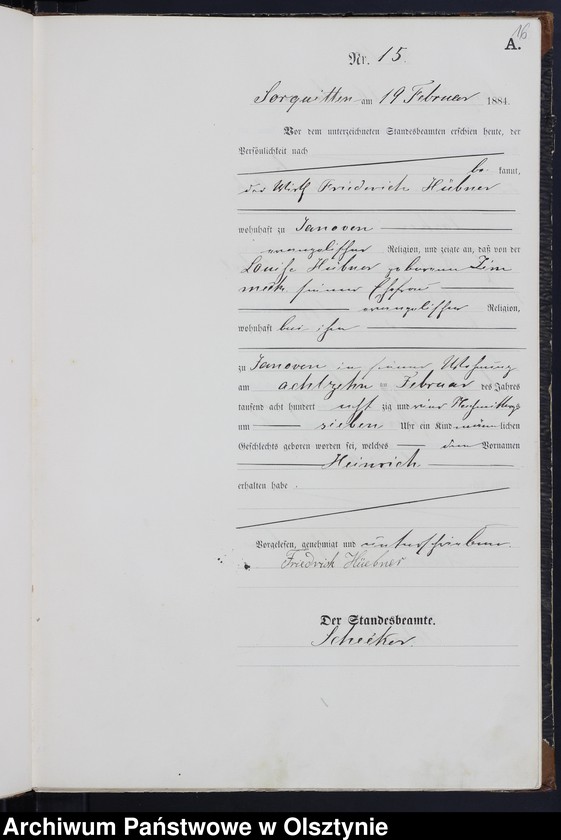 16
A.
Nr. 15.
Sorquitten am 19 Februar 1884.
Vor dem unterzeichneten Standesbeamten erschien heute, der
Persönlichkeit nach
be kannt,
der Wirth Friederich Hübner
wohnhaft zu Janowen
evangelischer Religion, und zeigte an, daß von der
Louise Hübner geborenen Zim
meck seiner Ehefrau
evangelischer Religion,
wohnhaft bei ihm
zu Janowen in seiner Wohnung
am achtzehn ten Februar des Jahres
tausend acht hundert acht zig und vier Nachmittags
um sieben Uhr ein Kind männlichen
Geschlechts geboren worden sei, welches den Vornamen
Heinrich
erhalten habe.
Vorgelesen, genehmigt und unterschrieben.
Friedrich Huebner
Der Standesbeamte.
Archiwum Państwowe w Olsztynie